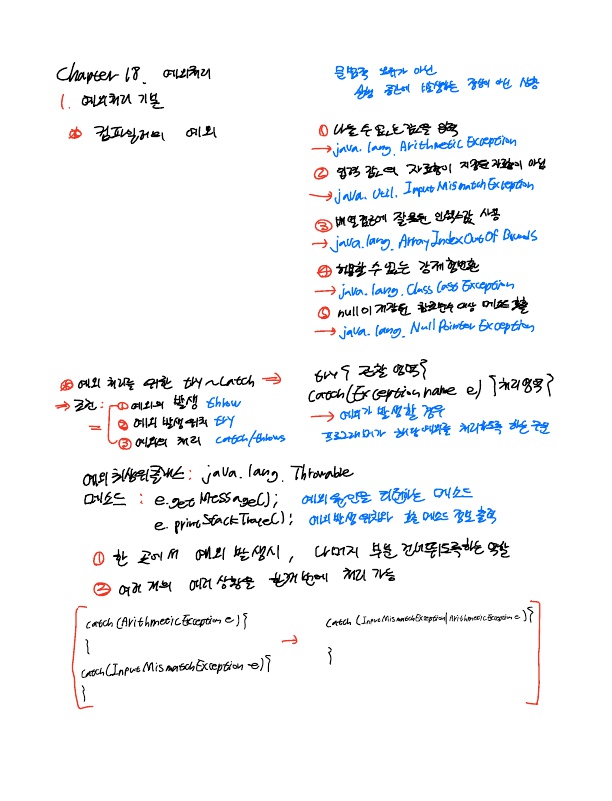 Chapter 18. 예외처리
1. 예외처리 기본
문법적 오류가 아닌
실행 중간에 발생하는 정상이 아닌 상황
컴파일러의 예외
① 나눌 수 없는 값을 입력
→ java.lang.ArithmeticException
② 입력 값의 자료형이 지정된 자료형이 아님
→ java.util.InputMismatchException
③ 배열 접근에 잘못된 인덱스값 사용
→ java.lang.ArrayIndexOutOfBounds
④ 허용할 수 없는 강제 형변환
→ java.lang.ClassCastException
⑤ null이 저장된 참조변수 대상 메소드 호출
→ java.lang.NullPointerException
예외 처리를 위한 try~catch ⇒
try { 관찰 영역 }
catch(Exception name e) { 처리영역 }
⇒ 조건: ① 예외의 발생 throw
= ② 예외 발생 위치 try
③ 예외의 처리 catch/throws
→ 예외가 발생할 경우
프로그래머가 해당 예외를 처리하도록 하는 구문
예외 최상위 클래스: java.lang.Throwable
메소드 : e.getMessage(); 예외 원인을 메소드
e.printStackTrace(); 예외 발생 위치와 호출 메소드 정보 출력
① 한 곳에서 예외 발생시, 나머지 부분 건너뛰도록하는 역할
② 여러 개의 예외 상황을 한꺼번에 처리 가능
catch(ArithmeticException e) {
}
catch(InputMismatchException e) {
}
→
catch(InputMismatchException|ArithmeticException e) {
}